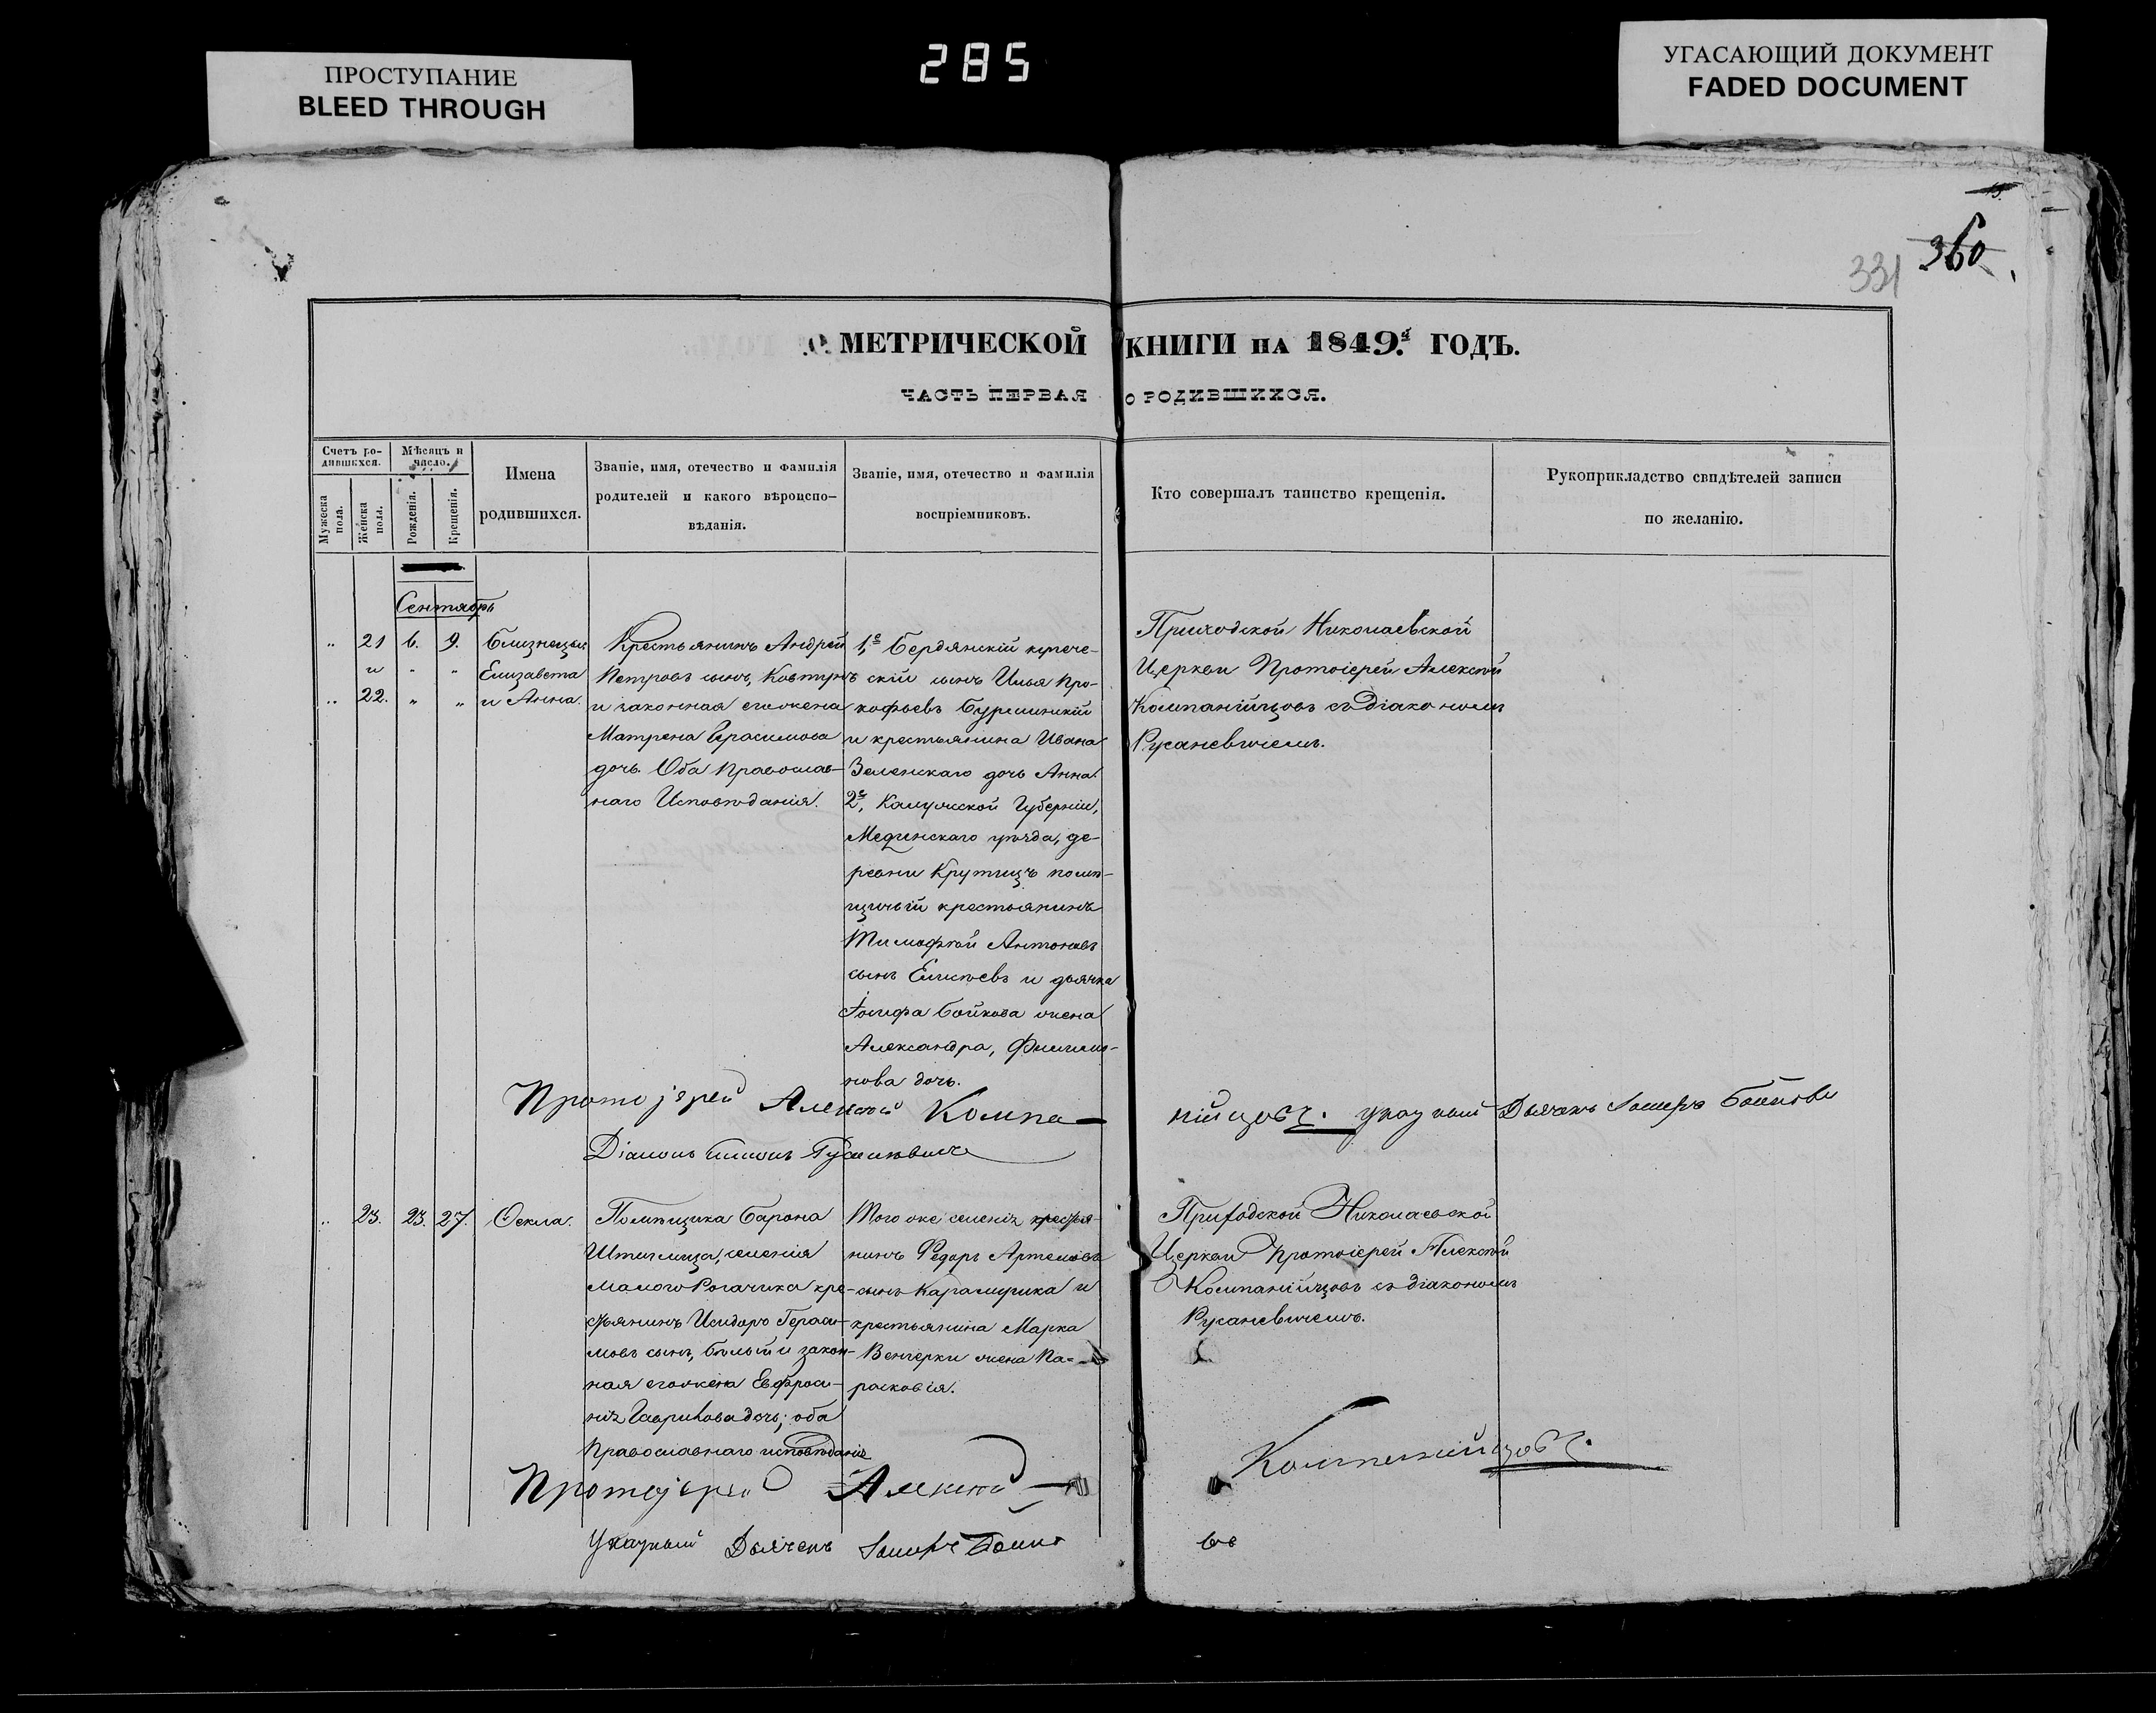 ПРОСТУПАНИЕ
BLEED THROUGH
285
УГАСАЮЩИЙ ДОКУМЕНТ
FADED DOCUMENT
331 360
МЕТРИЧЕСКОЙ КНИГИ НА 1849.й ГОДЪ.
ЧАСТЬ ПЕРВАЯ О РОДИВШИХСЯ.
Счетъ ро-
дившихся.
Мужеска
пола.
Женска
пола.
Мѣсяцъ и
число.
Рожденія.
Крещенія.
Имена
родившихся.
Званіе, имя, отечество и фамилія
родителей и какого вѣроиспо-
вѣданія.
Званіе, имя, отечество и фамилія
воспріемниковъ.
Кто совершалъ таинство крещенія.
Рукоприкладство свидѣтелей записи
по желанію.
Сентябрь
21 6. 9.
и
22.
Близнецы
Елизавета
и Анна.
Крестьянинъ Андрей
Петровъ сынъ,
и законная его жена
Матрена Герасимова
дочь. Оба Православ-
наго Исповѣданія.
1,е Бердянскій купече-
скій сынъ Илья Про-
кофьевъ
и крестьянина Ивана
Зеленскаго дочь Анна.
2,е Калужской Губерніи,
Медынскаго уѣзда, де-
ревни Крутицъ помѣ-
щичій крестьянинъ
Тимофей Антоновъ
сынъ Елисѣевъ и дьячка
Іосифа Бойкова жена
Александра, Филимо-
нова дочь.
Приходской Николаевской
Церкви Протоіерей Алексѣй
Компанійцовъ съ Діакономъ
Русаневичемъ.
Протоіерей Алексѣй Компа-
нійцовъ. Указный Дьячекъ Іосифъ Бойковъ
Діаконъ Русаневичъ
23. 23. 27.
Ѳекла.
Помѣщика Барона
Штиглица, селенія
Малого Рогачика кре-
стьянинъ Исидоръ Гераси-
мовъ сынъ, Бѣлый и закон-
ная его жена Евфроси-
нія Гаврилова дочь; оба
Православнаго исповѣданія
Того же селенія крестья-
нинъ Федоръ Артемовъ
сынъ и
крестьянина Марка
Венгерки жена Па-
расковія.
Приходской Николаевской
Церкви Протоіерей Алексѣй
Компанійцовъ съ діакономъ
Русаневичемъ.
Протоіерей Алексѣй
Компанійцовъ.
Указный Дьячекъ Іосифъ Бойко
въ